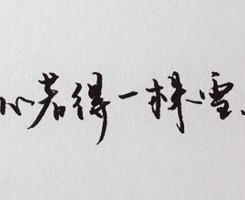 心若得一抹雪、